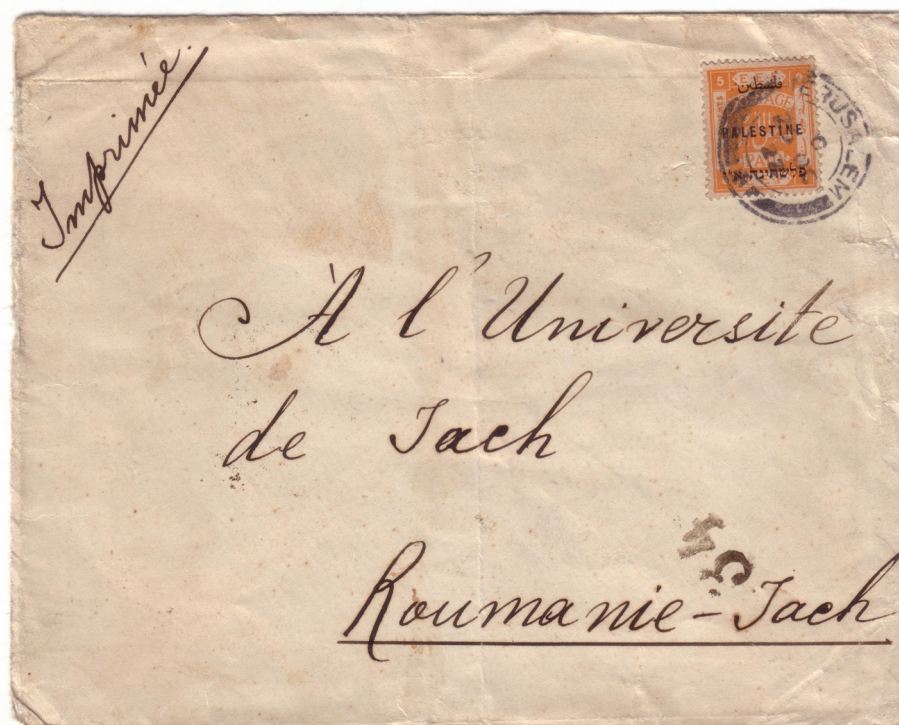 Imprimée.
5 E.E.F. 5
فلسطين
PALESTINE
פלשתינה א״י
JERUSALEM
À l'Université
de Jach
Roumanie - Jach